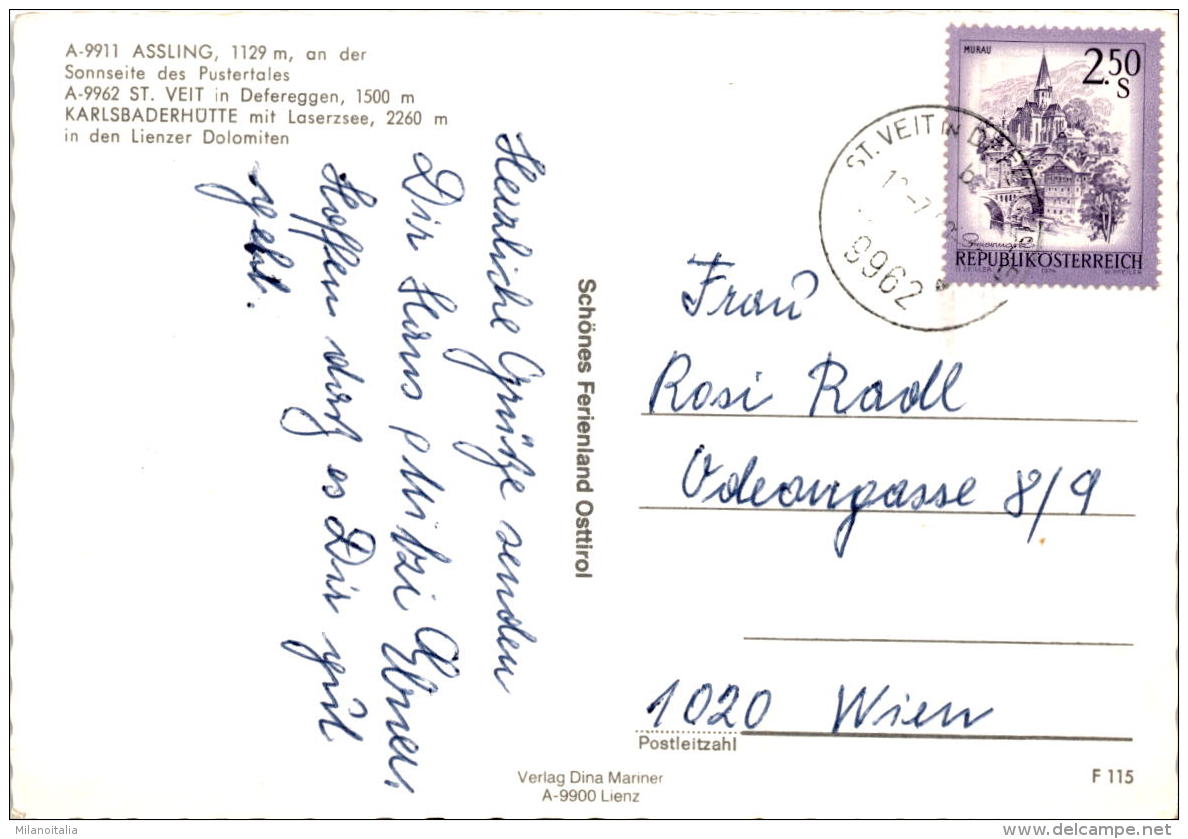 A-9911 ASSLING, 1129 m, an der
Sonnseite des Pustertales
A-9962 ST. VEIT in Defereggen, 1500 m
KARLSBADERHÜTTE mit Laserzsee, 2260 m
in den Lienzer Dolomiten
Herzliche Grüße senden
Dir Hans Mitzi Ebner,
Hoffen das es Dir gut
geht.
Schönes Ferienland Osttirol
MURAU
2.50
S
REPUBLIK ÖSTERREICH
ST. VEIT IN DEF
b
9962
Frau
Rosi Radl
Odeongasse 8/9
1020 Wien
Postleitzahl
Verlag Dina Mariner
A-9900 Lienz
F 115
Milanoitalia
delcampe.net